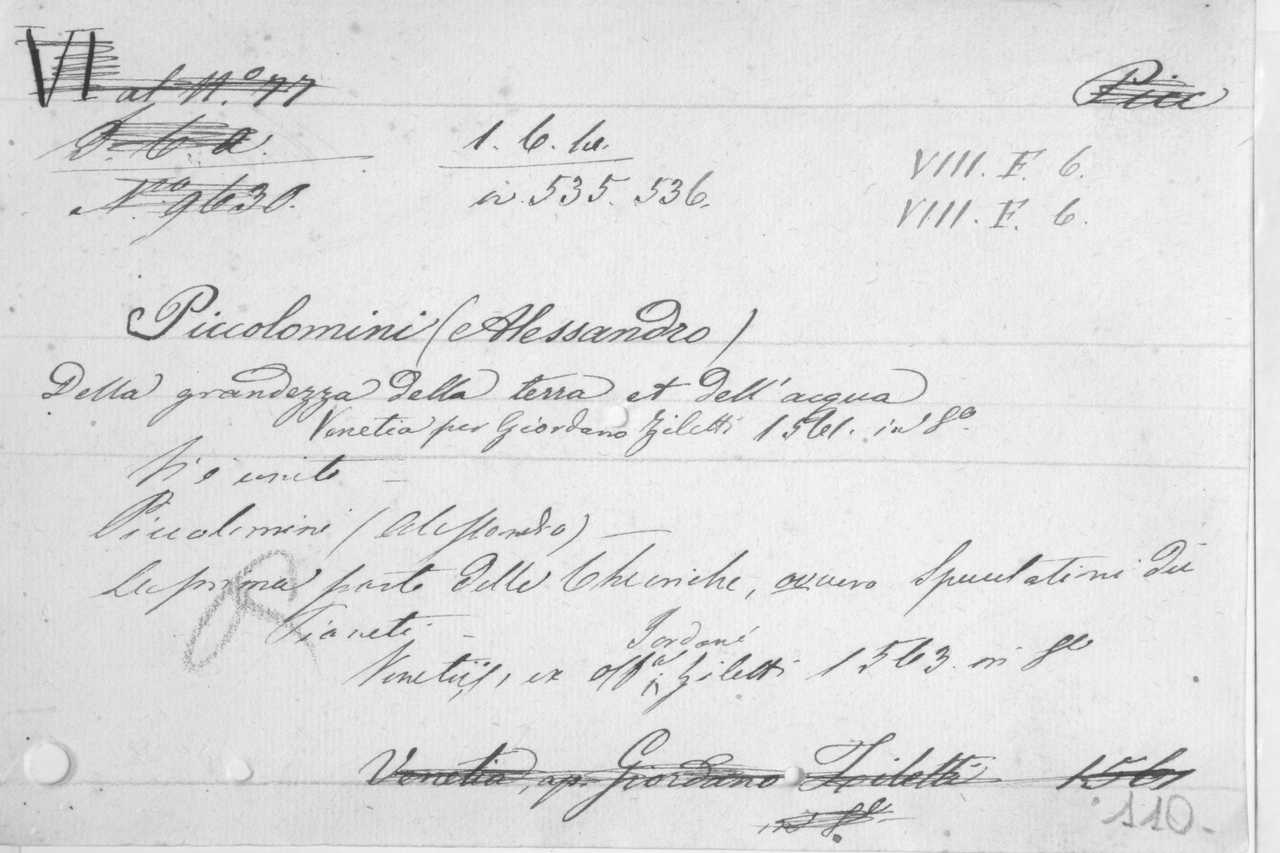 VI al N.º 77
Picc
2. 6 a.
1. 6. w.
VIII. F. 6.
N.º 9630.
in 535. 536.
VIII. F. 6.
Piccolomini (Alessandro)
Della grandezza della terra et dell'acqua
Venetia per Giordano Ziletti 1561. in 8º
Vi è unito –
Piccolomini (Alessandro) —
La prima parte delle Theoriche, ovvero Speculationi dei
Pianeti –
Jordani
Venetiis, ex offª Ziletti 1563. in 8º
Venetia, ap. Giordano Ziletti 1561
in 8º
110.